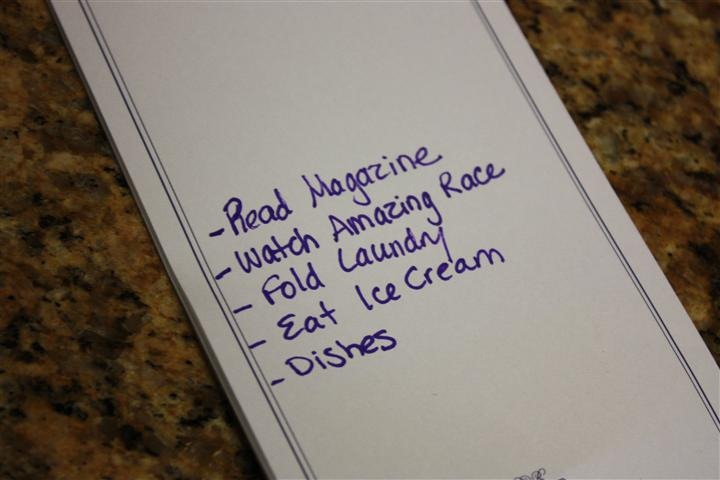 - Read Magazine
- Watch Amazing Race
- Fold Laundry
- Eat Ice Cream
- Dishes